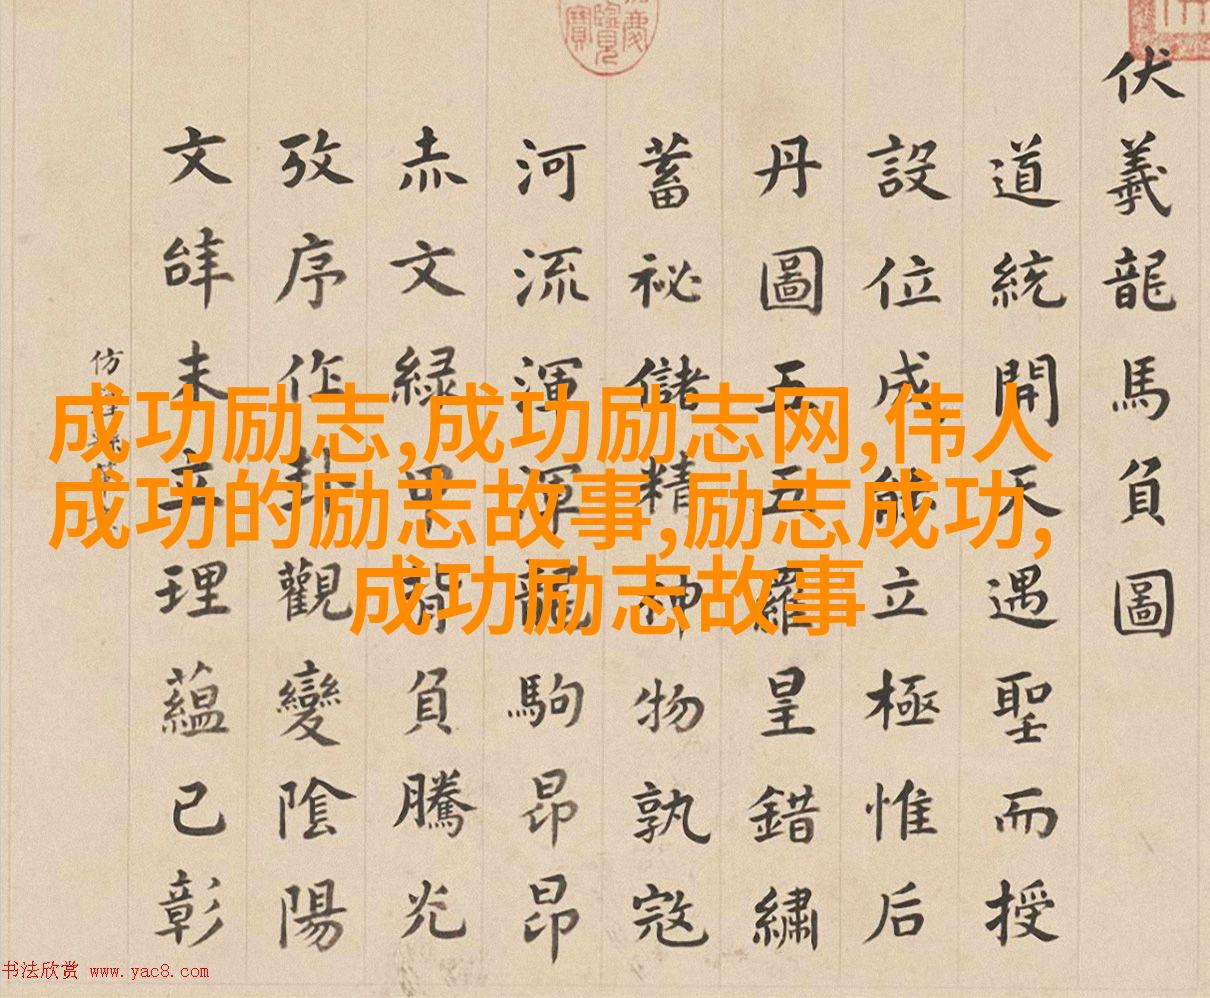 伏羲龍馬負圖
道統開天遇聖而授
設位成能立極惟后
丹圖五五羅皇錯繡
蓄祕儲精神物孰寇
河流渾渾龍駒昂昂
赤文緑甲背負騰光
攷序作卦觀變陰陽
文未立理蘊已彰
仿
成功励志,成功励志网,伟人
成功的励志故事,励志成功,
成功励志故事
书法欣赏 www.yac8.com